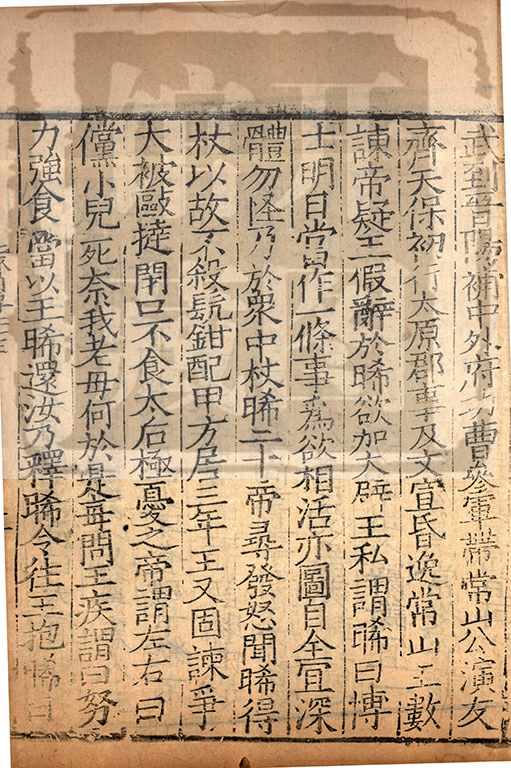 武到晉陽補中外府功曹參軍帶常山公演友
齊天保初行太原郡事及文宣昏逸常山王數
諫帝疑王假辭於睎欲加大辟王私謂睎曰博
士明日當作一條事為欲相活亦圖自全宜深
體勿怪乃於衆中杖睎二十帝尋發怒聞睎得
杖以故不殺髡鉗配甲方居三年王又固諫爭
大被敺撻閉口不食太后極憂之帝謂左右曰
儻小兒死奈我老母何於是每問王疾謂曰努
力強食當以王睎還汝乃釋睎令往王抱睎曰